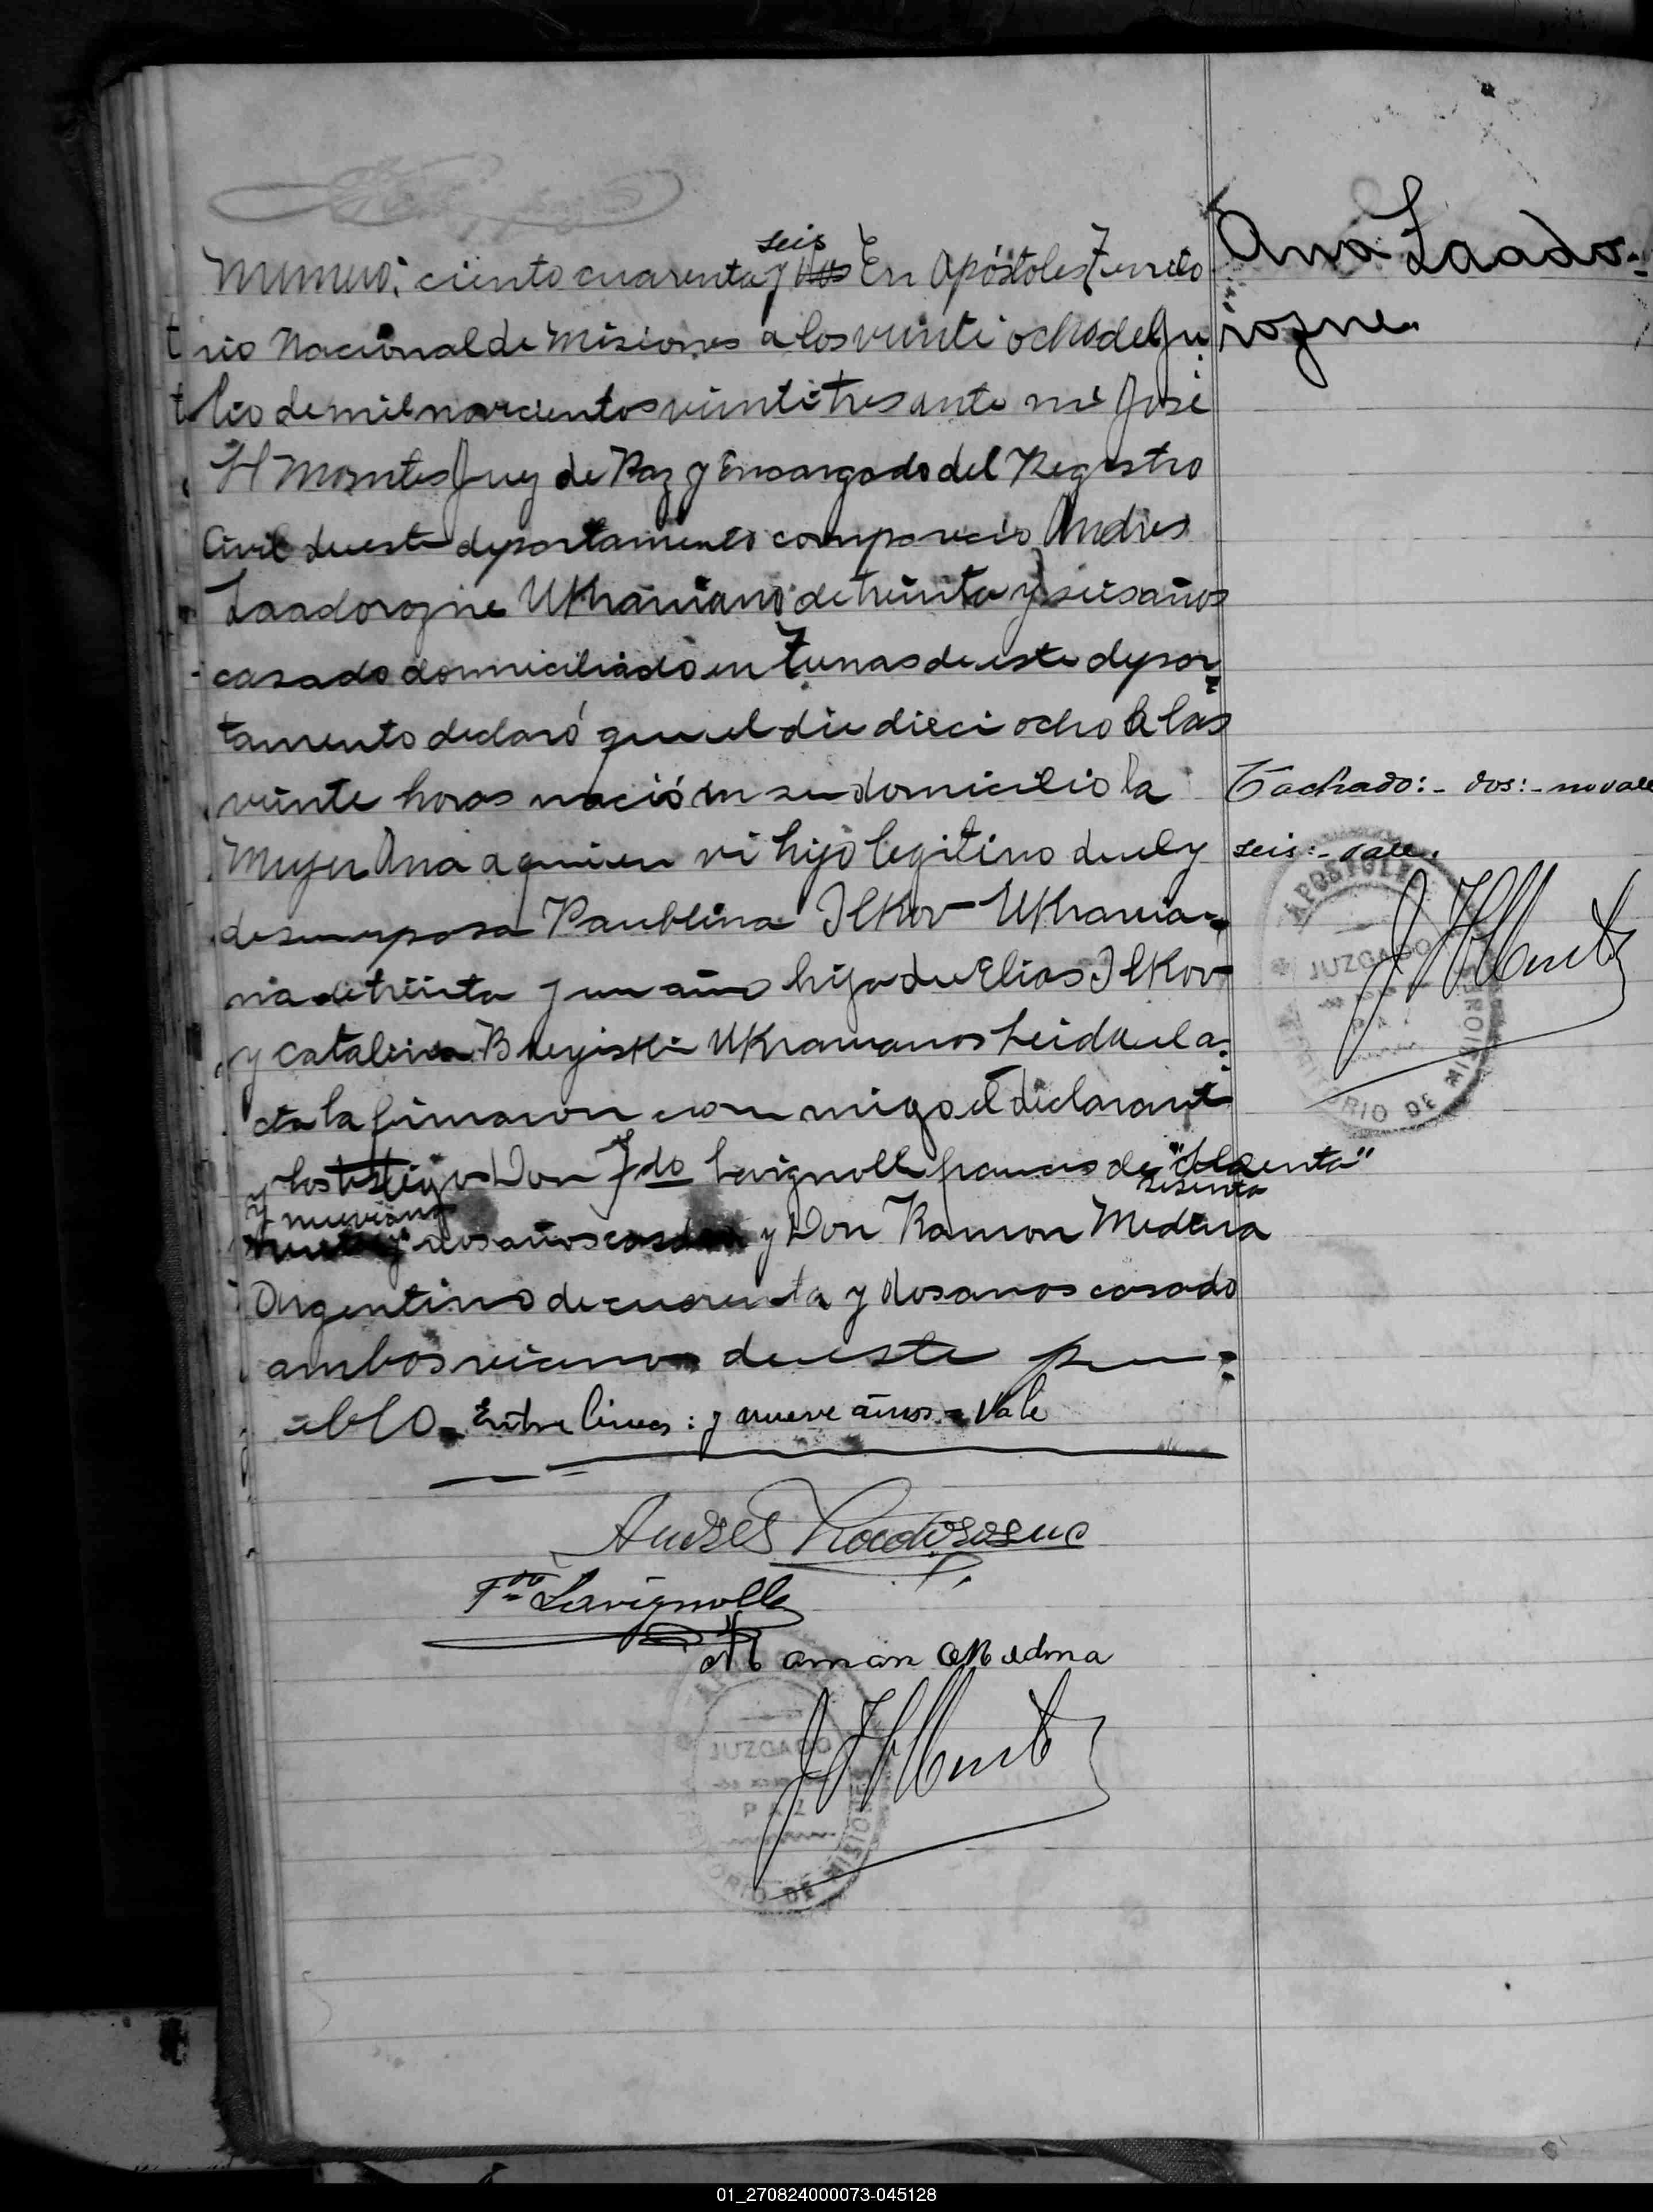 Ana Zaado-
rozne.
seis
Numero: ciento cuarenta y dos En Apóstoles Territo
rio Nacional de Misiones a los veinti ocho de Ju
lio de mil novecientos veintitres ante mi José
H Montes Juez de Paz y Encargado del Registro
Civil de este departamento comparecio Andres
Zaadorozne Ukraniano de treinta y seis años
casado domiciliado en Tunas de este depar-
tamento declaró que el die dieci ocho a las
veinte horas nació en su domicilio la
Mujer Ana a quien vi hijo legitimo de el y
de su esposa Paublina Ilkov Ukrania-
na de treinta y un año hija de Elias Ilkov
y Catalina Ukranianos Leida el a-
cta la firmaron con migo el declarant
y los testigos Don Fdo Lavignolle frances de
sesenta
y nueve años
dos años casado y Don Ramon Medina
Argentino de cuarenta y dos anos casado
ambos vicinos de este pu-
eblo. Entre lineas: y nueve años - Vale
Tachado:- dos:- no vale
seis:- vale.
APOSTOLES
JUZGADO
PAZ
TERRITORIO DE MISIONES
Andres Zaadorozne
Fdo Lavignolle
Raman Medina
J H Montes
JUZGADO
PAZ
TERRITORIO DE MISIONES
J H Montes
01_270824000073-045128